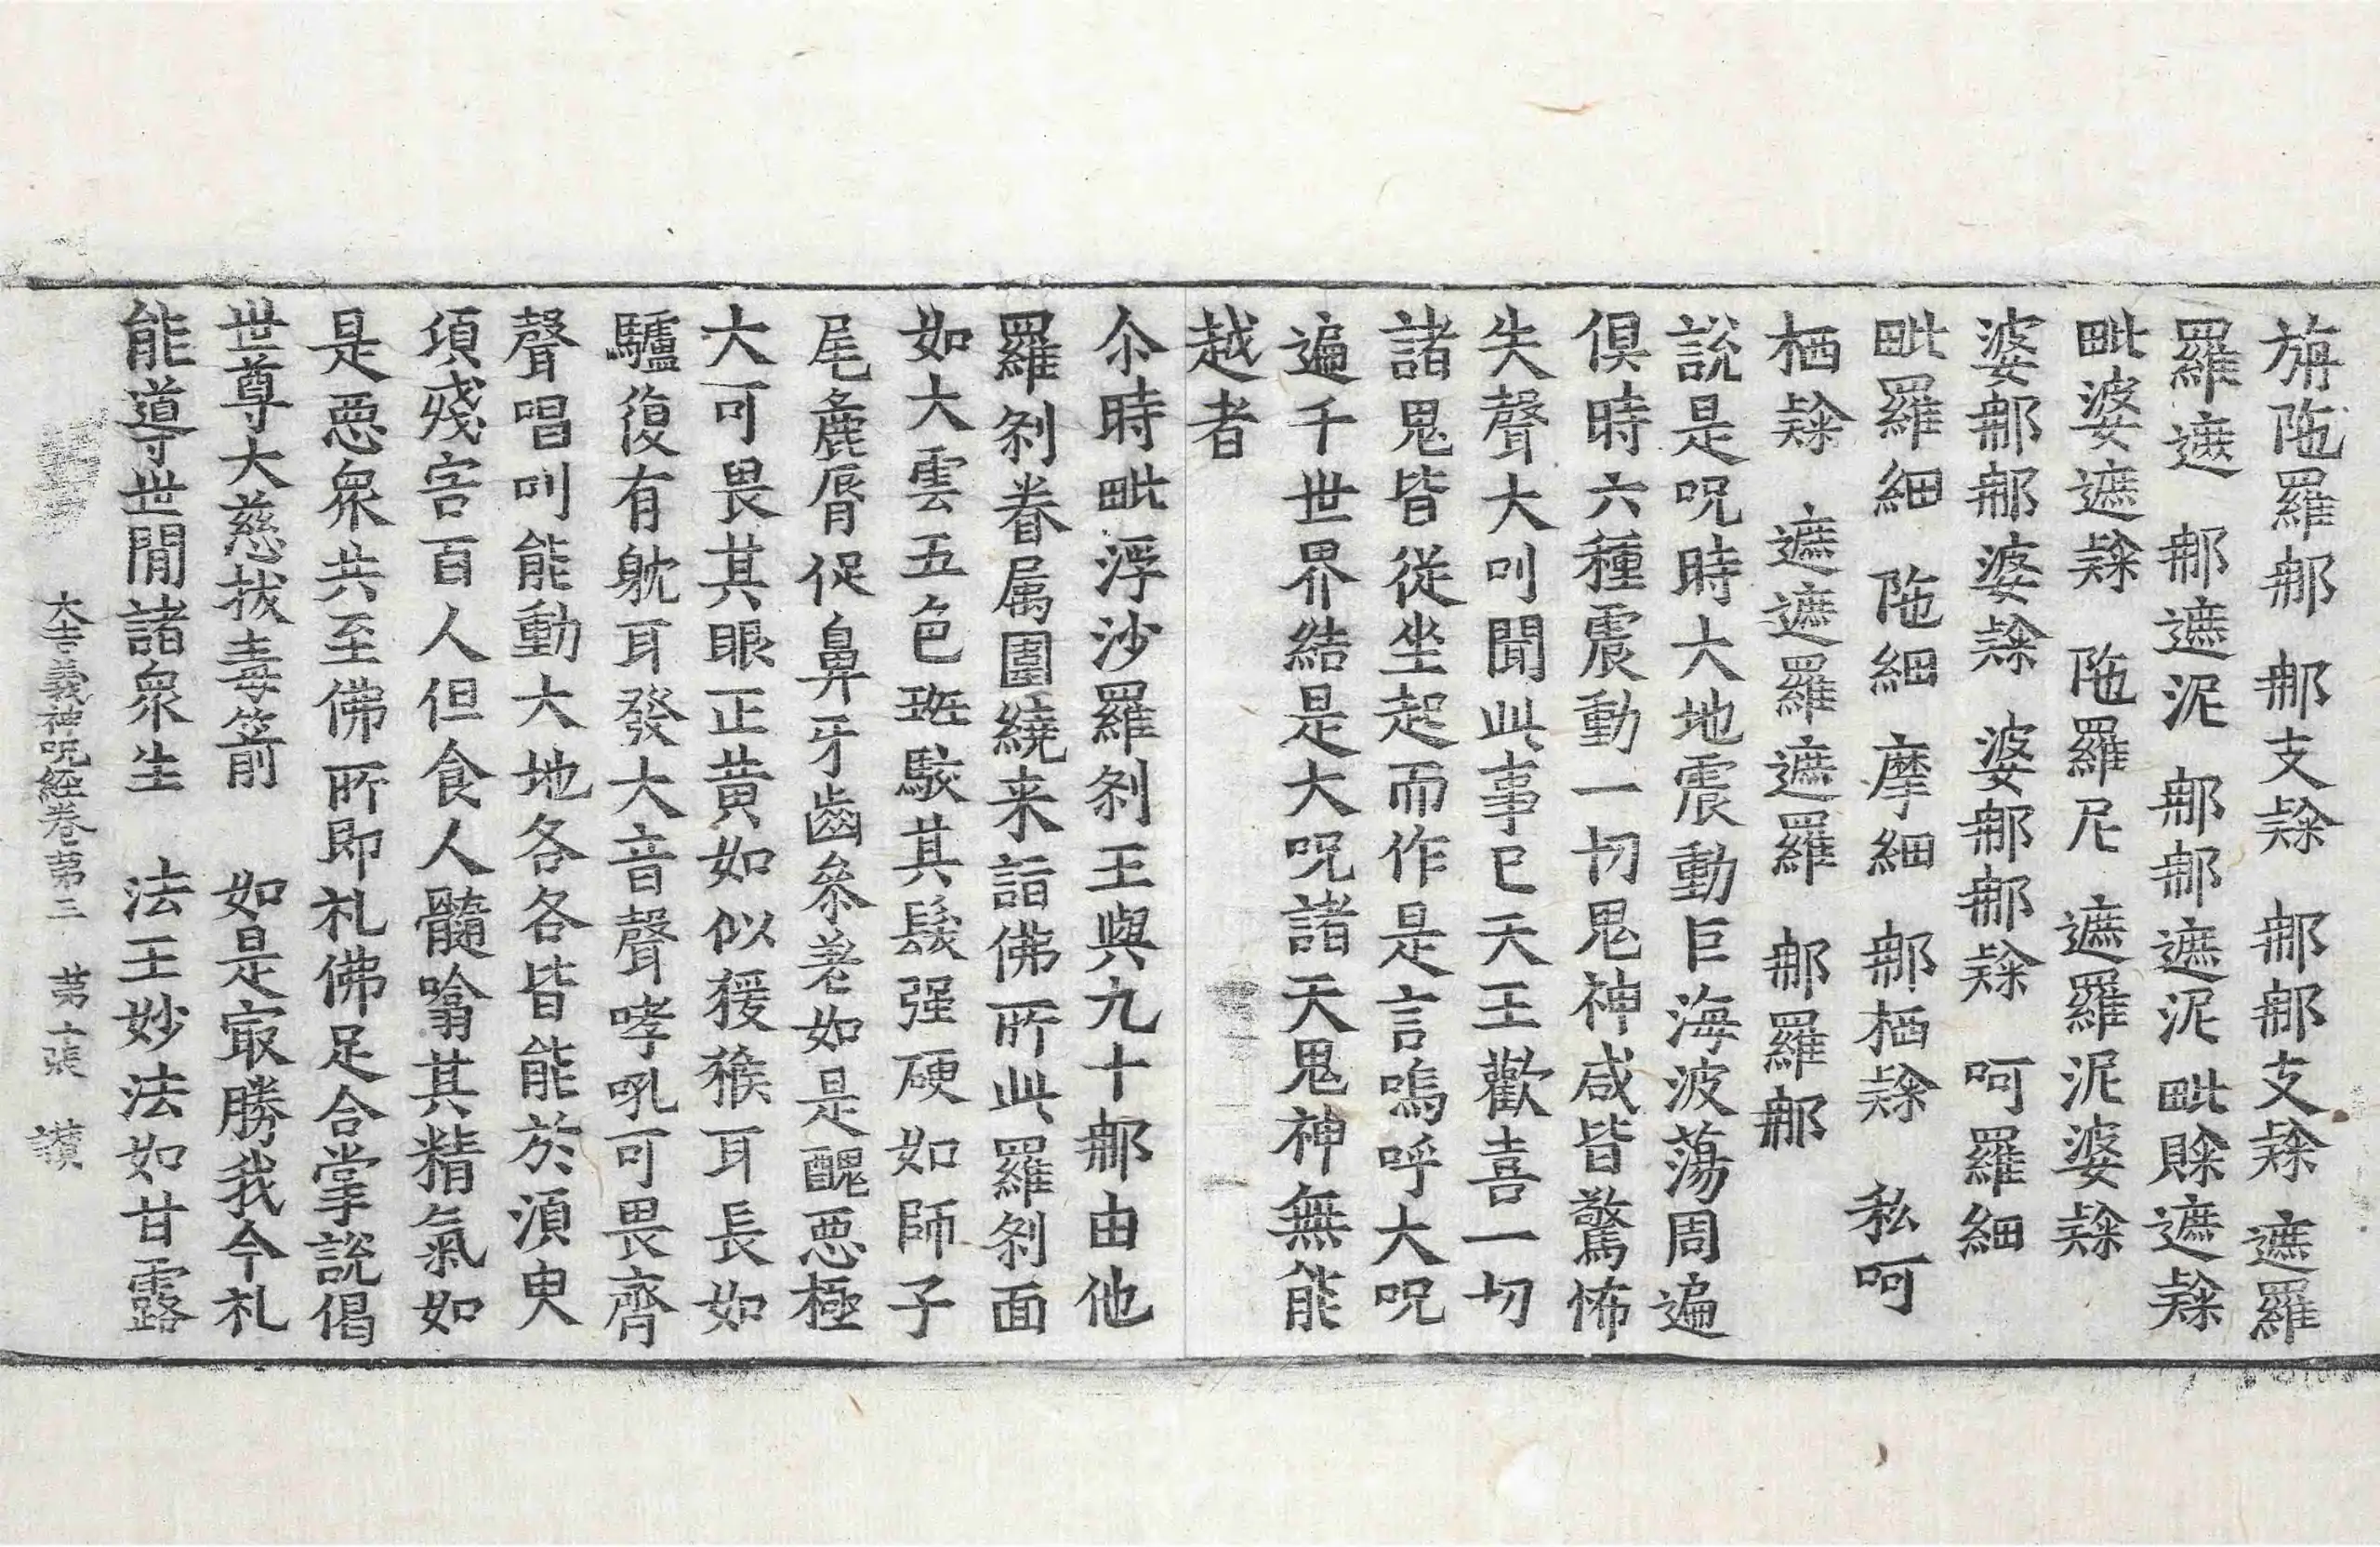 旃陁羅那 那支𨽻 那那支𨽻 遮羅
羅遮 那遮泥 那那遮泥毗賖遮𨽻
毗婆遮𨽻 陁羅尼 遮羅泥婆𨽻
婆那那婆𨽻 婆那那𨽻 呵羅細
毗羅細 陁細 摩細 那栖𨽻 私呵
栖𨽻 遮遮羅遮羅 那羅那
說是呪時大地震動巨海波蕩周遍
俱時六種震動一切鬼神咸皆驚怖
失聲大叫聞此事已天王歡喜一切
諸鬼皆從坐起而作是言嗚呼大呪
遍千世界結是大呪諸天鬼神無能
越者
尒時毗浮沙羅剎王與九十那由他
羅剎眷属圍繞来詣佛所此羅剎面
如大雲五色斑駮其髮强硬如師子
尾麁脣促鼻牙齒叅差如是醜惡極
大可畏其眼正黄如似猨猴耳長如
驢復有躭耳發大音聲哮吼可畏齊
聲唱叫能動大地各各皆能於湏臾
項殘害百人但食人髓噏其精氣如
是惡衆共至佛所即礼佛足合掌說偈
世尊大慈拔毒箭 如是㝡勝我今礼
能導世間諸衆生 法王妙法如甘露
大吉義神呪經卷苐三 苐十張 讃